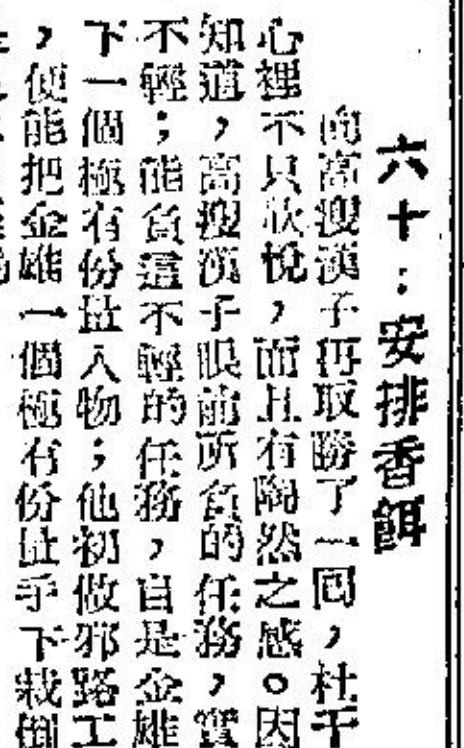 六十：安排香餌
向高瘦漢子再取勝了一回，杜干
心裡不只欣悅，而且有陶然之感。因
知道，高瘦漢子眼前所負的任務，實
不輕；能負這不輕的任務，自是金雄
下一個極有份量人物；他初做邪路工
，便能把金雄一個極有份量手下栽倒